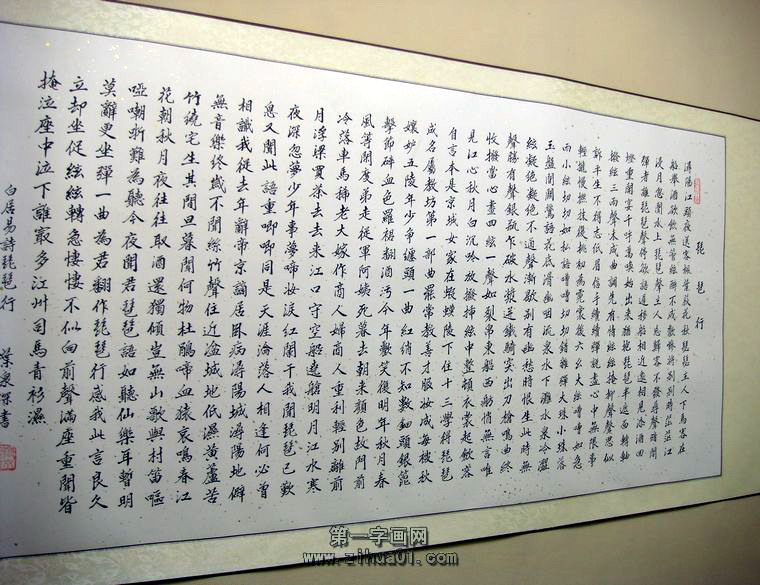 琵琶行
潯陽江頭夜送客楓葉荻花秋瑟瑟主人下馬客在
船舉酒欲飲無管絃醉不成歡慘將別別時茫茫江
浸月忽聞水上琵琶聲主人忘歸客不發尋聲暗問
彈者誰琵琶聲停欲語遲移船相近邀相見添酒回
燈重開宴千呼萬喚始出來猶抱琵琶半遮面轉軸
撥絃三兩聲未成曲調先有情絃絃掩抑聲聲思似
訴平生不得志低眉信手續續彈說盡心中無限事
輕攏慢撚抹復挑初為霓裳後六么大絃嘈嘈如急
雨小絃切切如私語嘈嘈切切錯雜彈大珠小珠落
玉盤間關鶯語花底滑幽咽泉流水下灘水泉冷澀
絃凝絕凝絕不通聲漸歇別有幽愁暗恨生此時無
聲勝有聲銀瓶乍破水漿迸鐵騎突出刀槍鳴曲終
收撥當心畫四絃一聲如裂帛東船西舫悄無言唯
見江心秋月白沉吟放撥插絃中整頓衣裳起斂容
自言本是京城女家在蝦蟆陵下住十三學得琵琶
成名屬教坊第一部曲罷常教善才服妝成每被秋
孃妒五陵年少爭纏頭一曲紅綃不知數鈿頭銀篦
擊節碎血色羅裙翻酒污今年歡笑復明年秋月春
風等閒度弟走從軍阿姨死暮去朝來顏色故門前
冷落車馬稀老大嫁作商人婦商人重利輕別離前
月浮梁買茶去去來江口守空船遶艙明月江水寒
夜深忽夢少年事夢啼妝淚紅闌干我聞琵琶已歎
息又聞此語重唧唧同是天涯淪落人相逢何必曾
相識我從去年辭帝京謫居臥病潯陽城潯陽地僻
無音樂終歲不聞絲竹聲住近湓城地低濕黃蘆苦
竹繞宅生其間旦暮聞何物杜鵑啼血猿哀鳴春江
花朝秋月夜往往取酒還獨傾豈無山歌與村笛嘔
啞嘲哳難為聽今夜聞君琵琶語如聽仙樂耳暫明
莫辭更坐彈一曲為君翻作琵琶行感我此言良久
立却坐促絃絃轉急悽悽不似向前聲滿座重聞皆
掩泣座中泣下誰最多江州司馬青衫濕
白居易詩琵琶行 葉泉深書
第一字画网
www.zihua01.com